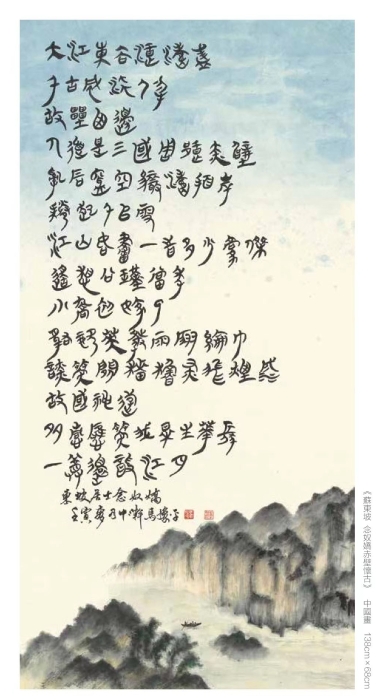 大江東去浪淘盡
千古風流人物
故壘西邊
人道是三國周郎赤壁
亂石穿空驚濤拍岸
捲起千堆雪
江山如畫一時多少豪傑
遙想公瑾當年
小喬初嫁了
雄姿英發羽扇綸巾
談笑間檣櫓灰飛煙滅
故國神遊
多情應笑我早生華髮
一尊還酹江月
東坡居士念奴嬌
壬寅
《蘇東坡 念奴嬌赤壁懷古》 中國畫 138cm×68cm